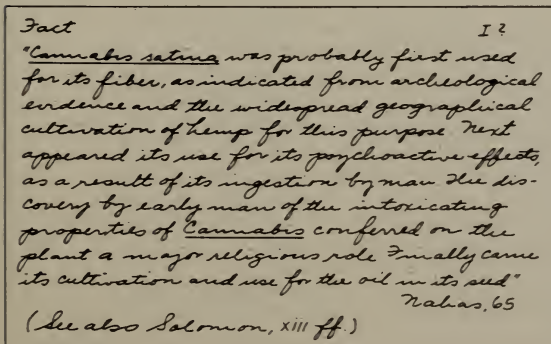 Fact I ?
"Cannabis sativa was probably first used
for its fiber, as indicated from archeological
evidence and the widespread geographical
cultivation of hemp for this purpose Next
appeared its use for its psychoactive effects,
as a result of its ingestion by man The dis-
covery by early man of the intoxicating
properties of Cannabis conferred on the
plant a major religious role Finally came
its cultivation and use for the oil in its seed"
Nahas, 65
(See also Solomon, xiii ff.)